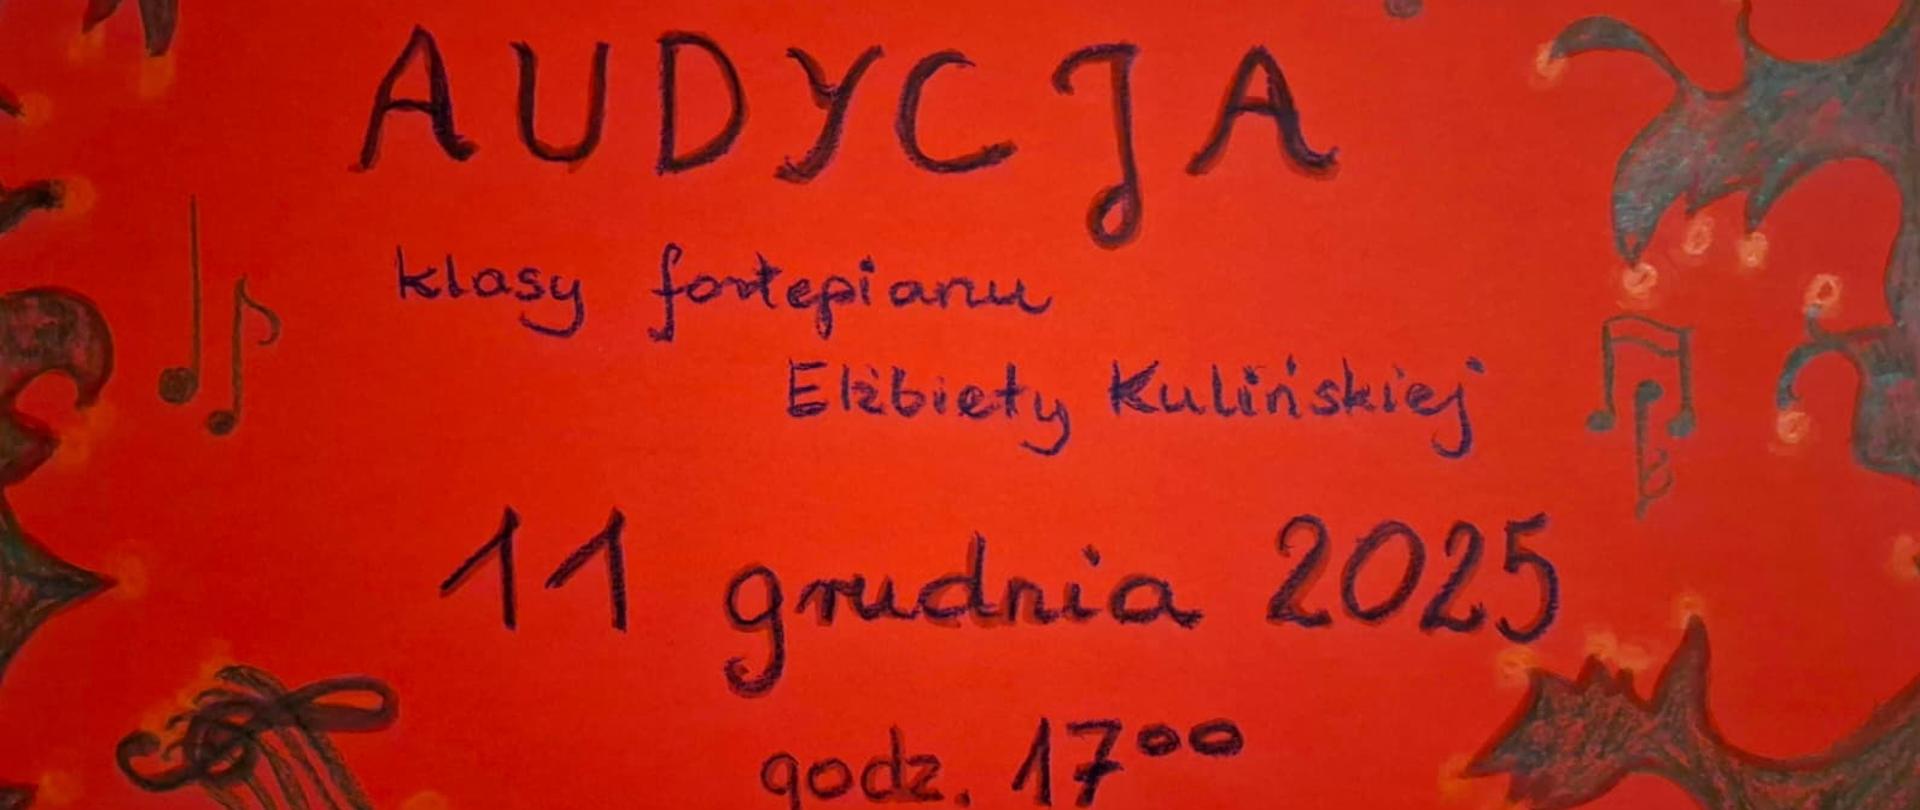 AUDYCJA
klasy fortepianu
Elżbiety Kulińskiej
11 grudnia 2025
godz. 17⁰⁰